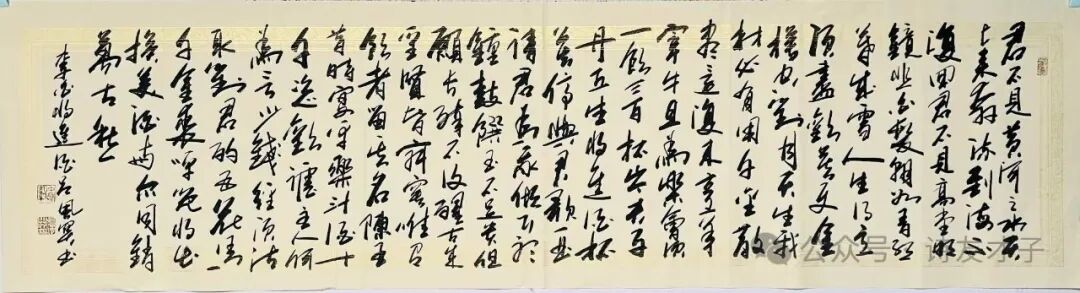 君不見黃河之水天
上来奔流到海不
復回君不見高堂明
鏡悲白髮朝如青絲
暮成雪人生得意
須盡歡莫使金
樽空對月天生我
材必有用千金散
盡還復来烹羊
宰牛且為樂會須
一飲三百杯岑夫子
丹丘生將進酒杯
莫停與君歌一曲
請君為我傾耳聽
鐘鼓饌玉不足貴但
願長醉不復醒古来
聖賢皆寂寞惟有
飲者留其名陳王
昔時宴平樂斗酒十
千恣歡謔主人何
為言少錢徑須沽
取對君酌五花馬
千金裘呼兒將出
換美酒與尔同銷
萬古愁
李白將進酒吕風书
公众号·诗友才子